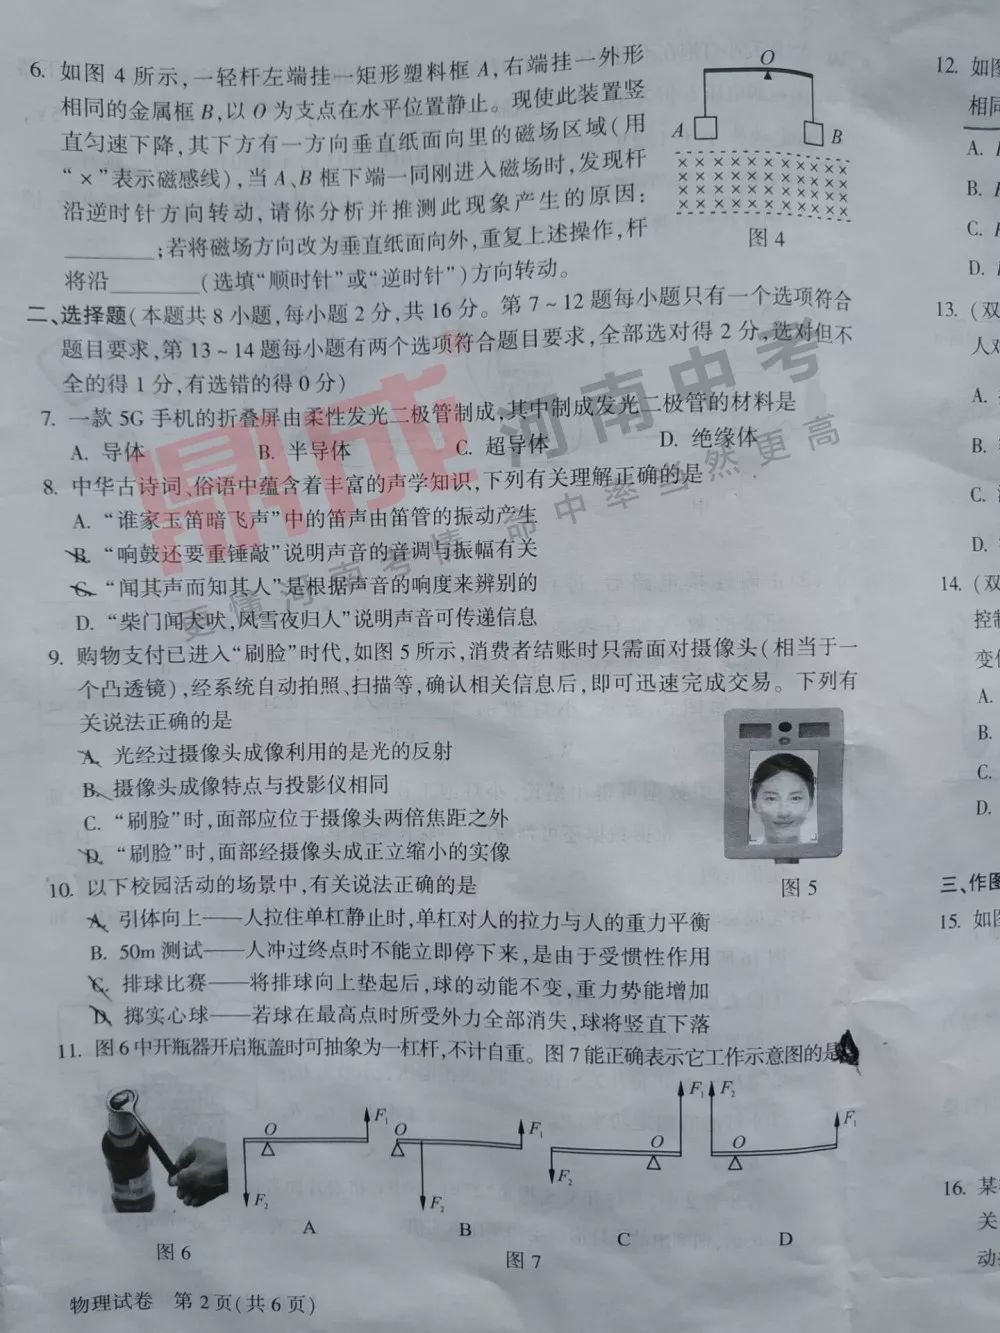 6. 如图 4 所示,一轻杆左端挂一矩形塑料框 A,右端挂一外形
相同的金属框 B,以 O 为支点在水平位置静止。现使此装置竖
直匀速下降,其下方有一方向垂直纸面向里的磁场区域(用
“×”表示磁感线),当 A、B 框下端一同刚进入磁场时,发现杆
沿逆时针方向转动,请你分析并推测此现象产生的原因:
________;若将磁场方向改为垂直纸面向外,重复上述操作,杆
将沿________(选填“顺时针”或“逆时针”)方向转动。
O
A
B
× × × × × × × × × × × × ×
× × × × × × × × × × × × ×
× × × × × × × × × × × × ×
× × × × × × × × × × × × ×
图 4
二、选择题(本题共 8 小题,每小题 2 分,共 16 分。第 7~12 题每小题只有一个选项符合
题目要求,第 13~14 题每小题有两个选项符合题目要求,全部选对得 2 分,选对但不
全的得 1 分,有选错的得 0 分)
7. 一款 5G 手机的折叠屏由柔性发光二极管制成,其中制成发光二极管的材料是
A. 导体 B. 半导体 C. 超导体 D. 绝缘体
8. 中华古诗词、俗语中蕴含着丰富的声学知识,下列有关理解正确的是
A. “谁家玉笛暗飞声”中的笛声由笛管的振动产生
B. “响鼓还要重锤敲”说明声音的音调与振幅有关
C. “闻其声而知其人”是根据声音的响度来辨别的
D. “柴门闻犬吠,风雪夜归人”说明声音可传递信息
9. 购物支付已进入“刷脸”时代,如图 5 所示,消费者结账时只需面对摄像头(相当于一
个凸透镜),经系统自动拍照、扫描等,确认相关信息后,即可迅速完成交易。下列有
关说法正确的是
A. 光经过摄像头成像利用的是光的反射
B. 摄像头成像特点与投影仪相同
C. “刷脸”时,面部应位于摄像头两倍焦距之外
D. “刷脸”时,面部经摄像头成正立缩小的实像
图 5
10. 以下校园活动的场景中,有关说法正确的是
A. 引体向上——人拉住单杠静止时,单杠对人的拉力与人的重力平衡
B. 50m 测试——人冲过终点时不能立即停下来,是由于受惯性作用
C. 排球比赛——将排球向上垫起后,球的动能不变,重力势能增加
D. 掷实心球——若球在最高点时所受外力全部消失,球将竖直下落
11. 图 6 中开瓶器开启瓶盖时可抽象为一杠杆,不计自重。图 7 能正确表示它工作示意图的是
O F₁ F₂
O F₁ F₂
O F₁ F₂
F₂ O F₁
A B C D
图 6 图 7
物理试卷 第 2 页(共 6 页)
鼎成 河南中考
更懂河南考情 命中率当然更高
12. 如图
相同
A.
B.
C.
D.
13. (双
人对
A.
B.
C.
D.
14. (双
控制
变
A.
B.
C.
D.
三、作图
15. 如图
16. 某
关
动